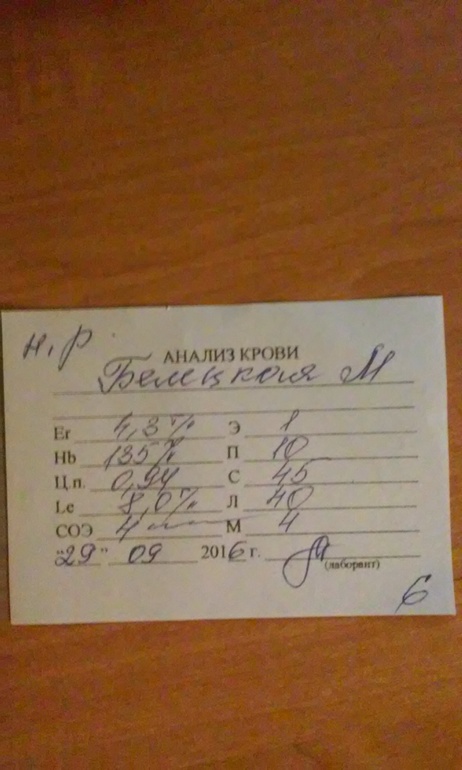 н.р
АНАЛИЗ КРОВИ
Белецкая М
Er 4,3 т/л Э 1
Hb 135 г/л П 10
Ц.п. 0,94 С 45
Le 8,0 г/л Л 40
СОЭ 4 мм М 4
"29" 09 2016 г.
(лаборант)
6